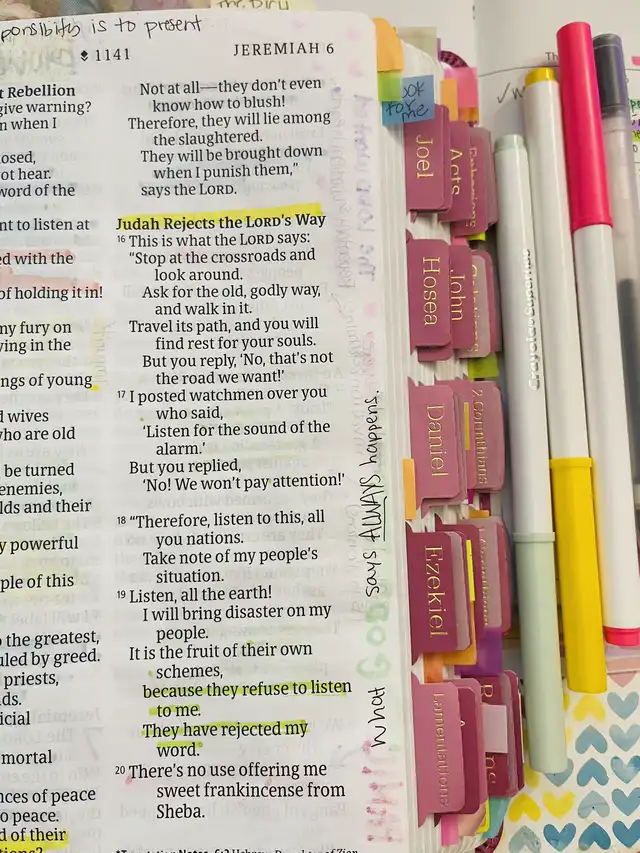 ponsibility is to present
1141
JEREMIAH 6
t Rebellion
give warning?
n when I
osed,
ot hear.
word of the
nt to listen at
ed with the
of holding it in!
my fury on
ying in the
ngs of young
d wives
who are old
be turned
enemies,
lds and their
y powerful
ple of this
o the greatest,
uled by greed.
priests,
ds.
icial
mortal
nces of peace
o peace.
d of their
tions?
Not at all—they don't even
know how to blush!
Therefore, they will lie among
the slaughtered.
They will be brought down
when I punish them,"
says the LORD.
Judah Rejects the LORD's Way
16 This is what the LORD says:
"Stop at the crossroads and
look around.
Ask for the old, godly way,
and walk in it.
Travel its path, and you will
find rest for your souls.
But you reply, 'No, that's not
the road we want!'
17 I posted watchmen over you
who said,
'Listen for the sound of the
alarm.'
But you replied,
'No! We won't pay attention!'
18 "Therefore, listen to this, all
you nations.
Take note of my people's
situation.
19 Listen, all the earth!
I will bring disaster on my
people.
It is the fruit of their own
schemes,
because they refuse to listen
to me.
They have rejected my
word.
20 There's no use offering me
sweet frankincense from
Sheba.
What GOD says ALWAYS happens.
look
for me
Joel
Acts
Ephesians
Hosea
John
Galatians
Daniel
2 Corinthians
Ezekiel
Lamentations
Crayola Supertips